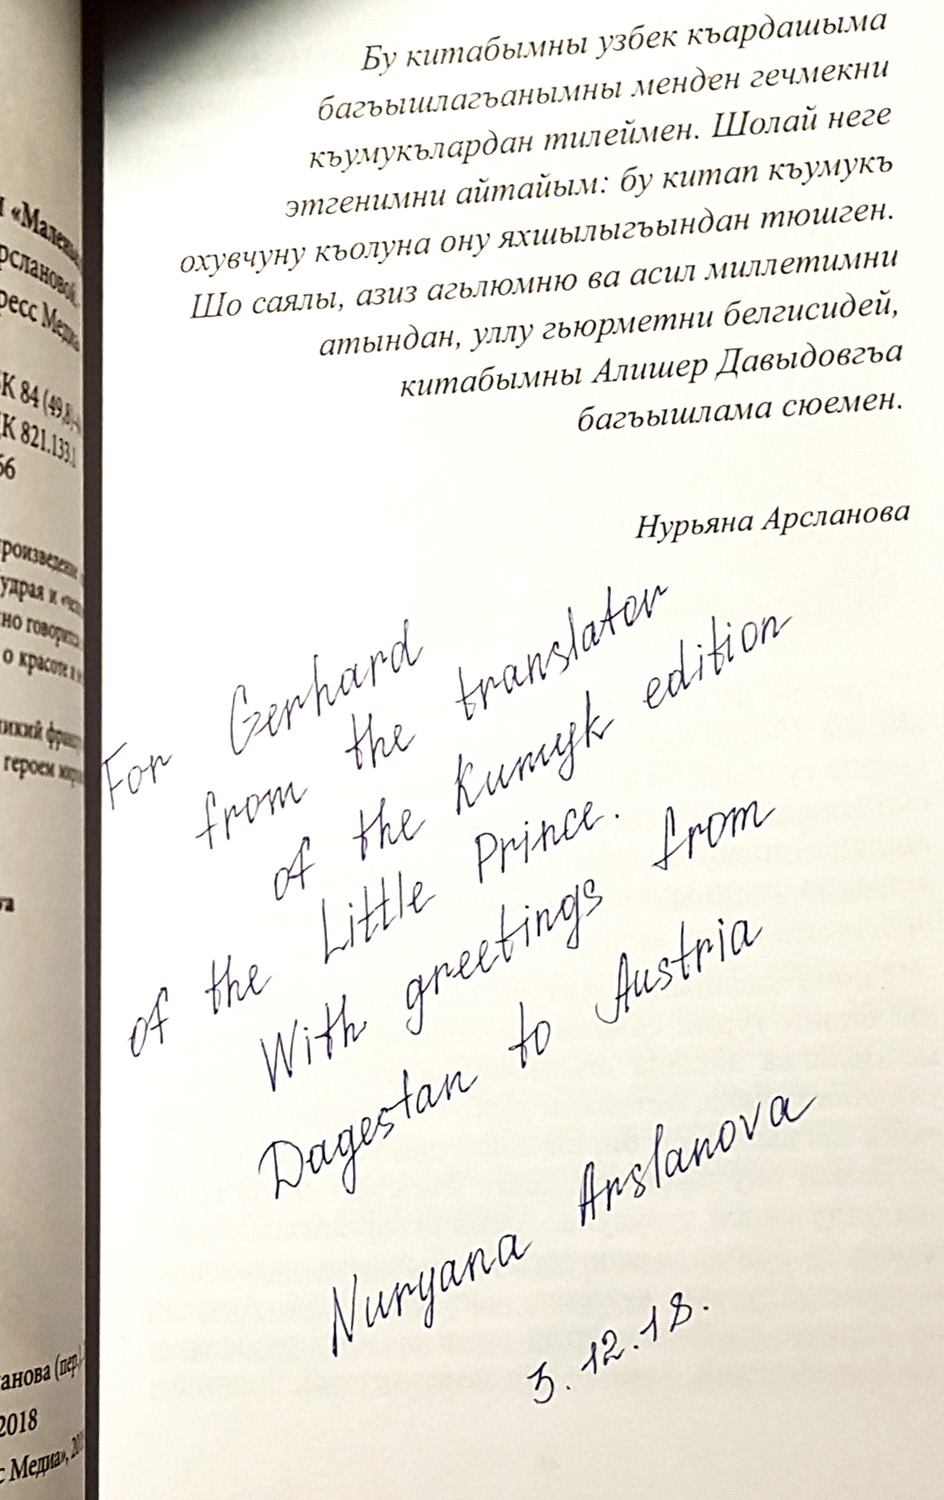 Бу китабымны узбек къардашыма
багъышлагъанымны менден гечмекни
къумукълардан тилеймен. Шолай неге
этгенимни айтайым: бу китап къумукъ
охувчуну къолуна ону яхшылыгъындан тюшген.
Шо саялы, азиз агьлюмню ва асил миллетимни
атындан, уллу гьюрметни белгисидей,
китабымны Алишер Давыдовгъа
багъышлама сюемен.
Нурьяна Арсланова
For Gerhard
from the translator
of the Kumyk edition
of the Little Prince.
With greetings from
Dagestan to Austria
Nuryana Arslanova
3.12.18.
К 84 (49,8)
К 821.133.1
66
произведение
но говорится
о красоте и
героем
(пер.)
2018
Медиа», 20